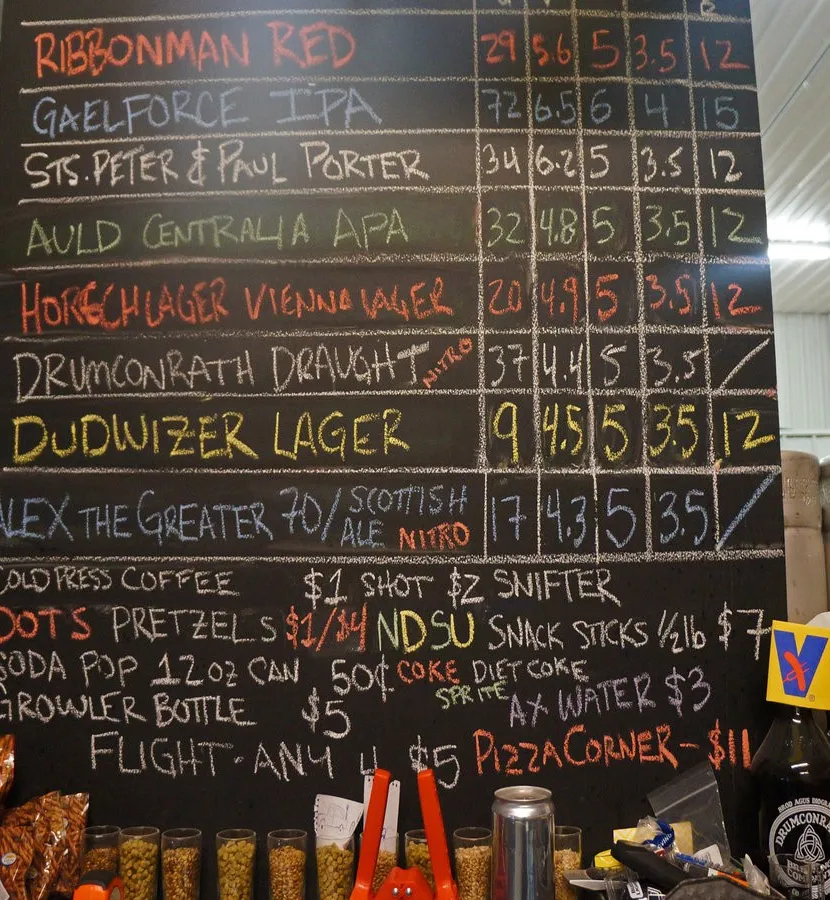 RIBBONMAN RED 29 5.6 5 3.5 12
GAELFORCE IPA 72 6.5 6 4 15
STS. PETER & PAUL PORTER 34 6.2 5 3.5 12
AULD CENTRALIA APA 32 4.8 5 3.5 12
HORSCHLAGER VIENNA LAGER 20 4.9 5 3.5 12
DRUMCONRATH DRAUGHT NITRO 37 4.4 5 3.5 /
DUDWIZER LAGER 9 4.5 5 3.5 12
ALEX THE GREATER 70/ SCOTTISH ALE NITRO 17 4.3 5 3.5 /
COLD PRESS COFFEE $1 SHOT $2 SNIFTER
DOTS PRETZELS $1/$4 NDSU SNACK STICKS 1/2 lb $7
SODA POP 12 OZ CAN 50¢ COKE DIET COKE
SPRITE
GROWLER BOTTLE $5 AX WATER $3
FLIGHT - ANY 4 $5 PIZZA CORNER - $11